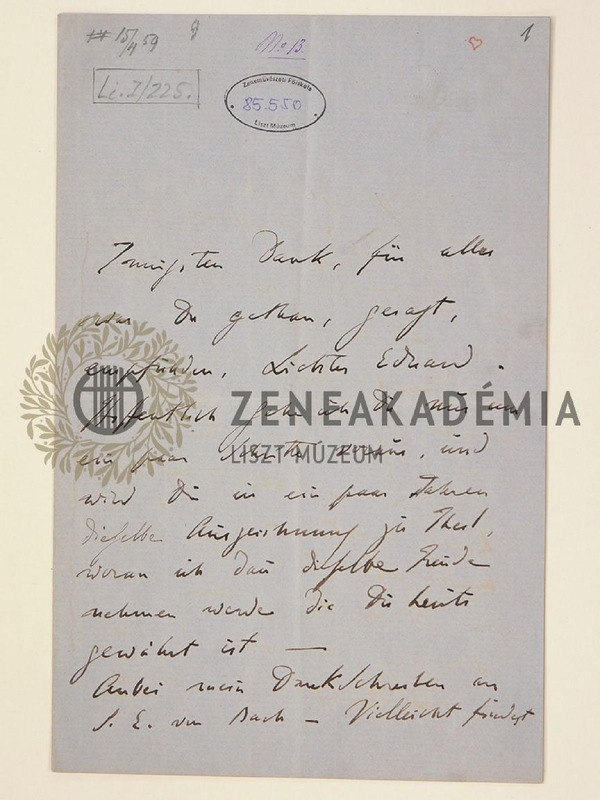 # 15/4 59
9
No 13.
1
Li. I/225.
Zeneművészeti Főiskola
85.550
Liszt Múzeum
Innigsten Dank, für alles
was Du gethan, gesagt,
empfunden, Liebster Eduard.
Hoffentlich gehe ich Dir nur um
ein paar voraus, und
wird Dir in ein paar Jahren
dieselbe Auszeichnung zu Theil,
woran ich dan dieselbe Freude
nehmen werde die Dir heute
gewährt ist —
Anbei mein Dankschreiben an
S. E. von Bach — Vielleicht findest
ZENEAKADÉMIA
LISZT MÚZEUM